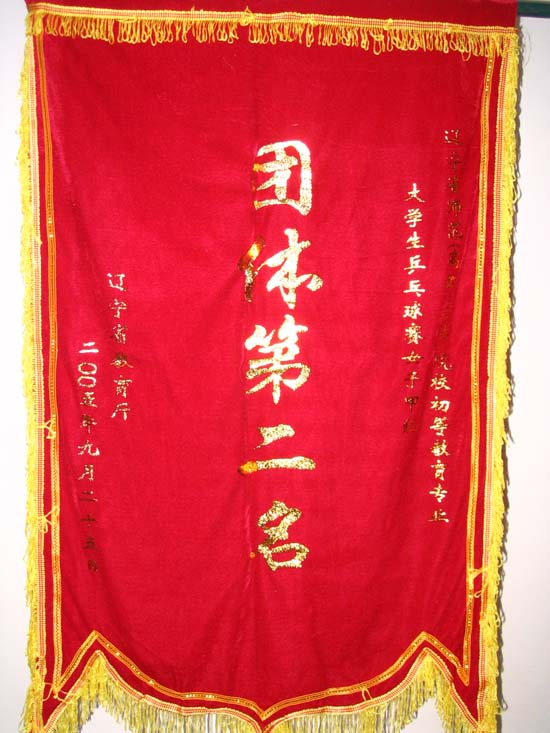 辽宁省师范(高
院校初等教育专业
大学生乒乓球赛女子甲组
团体第二名
辽宁省教育厅
二〇〇五年九月二十五日